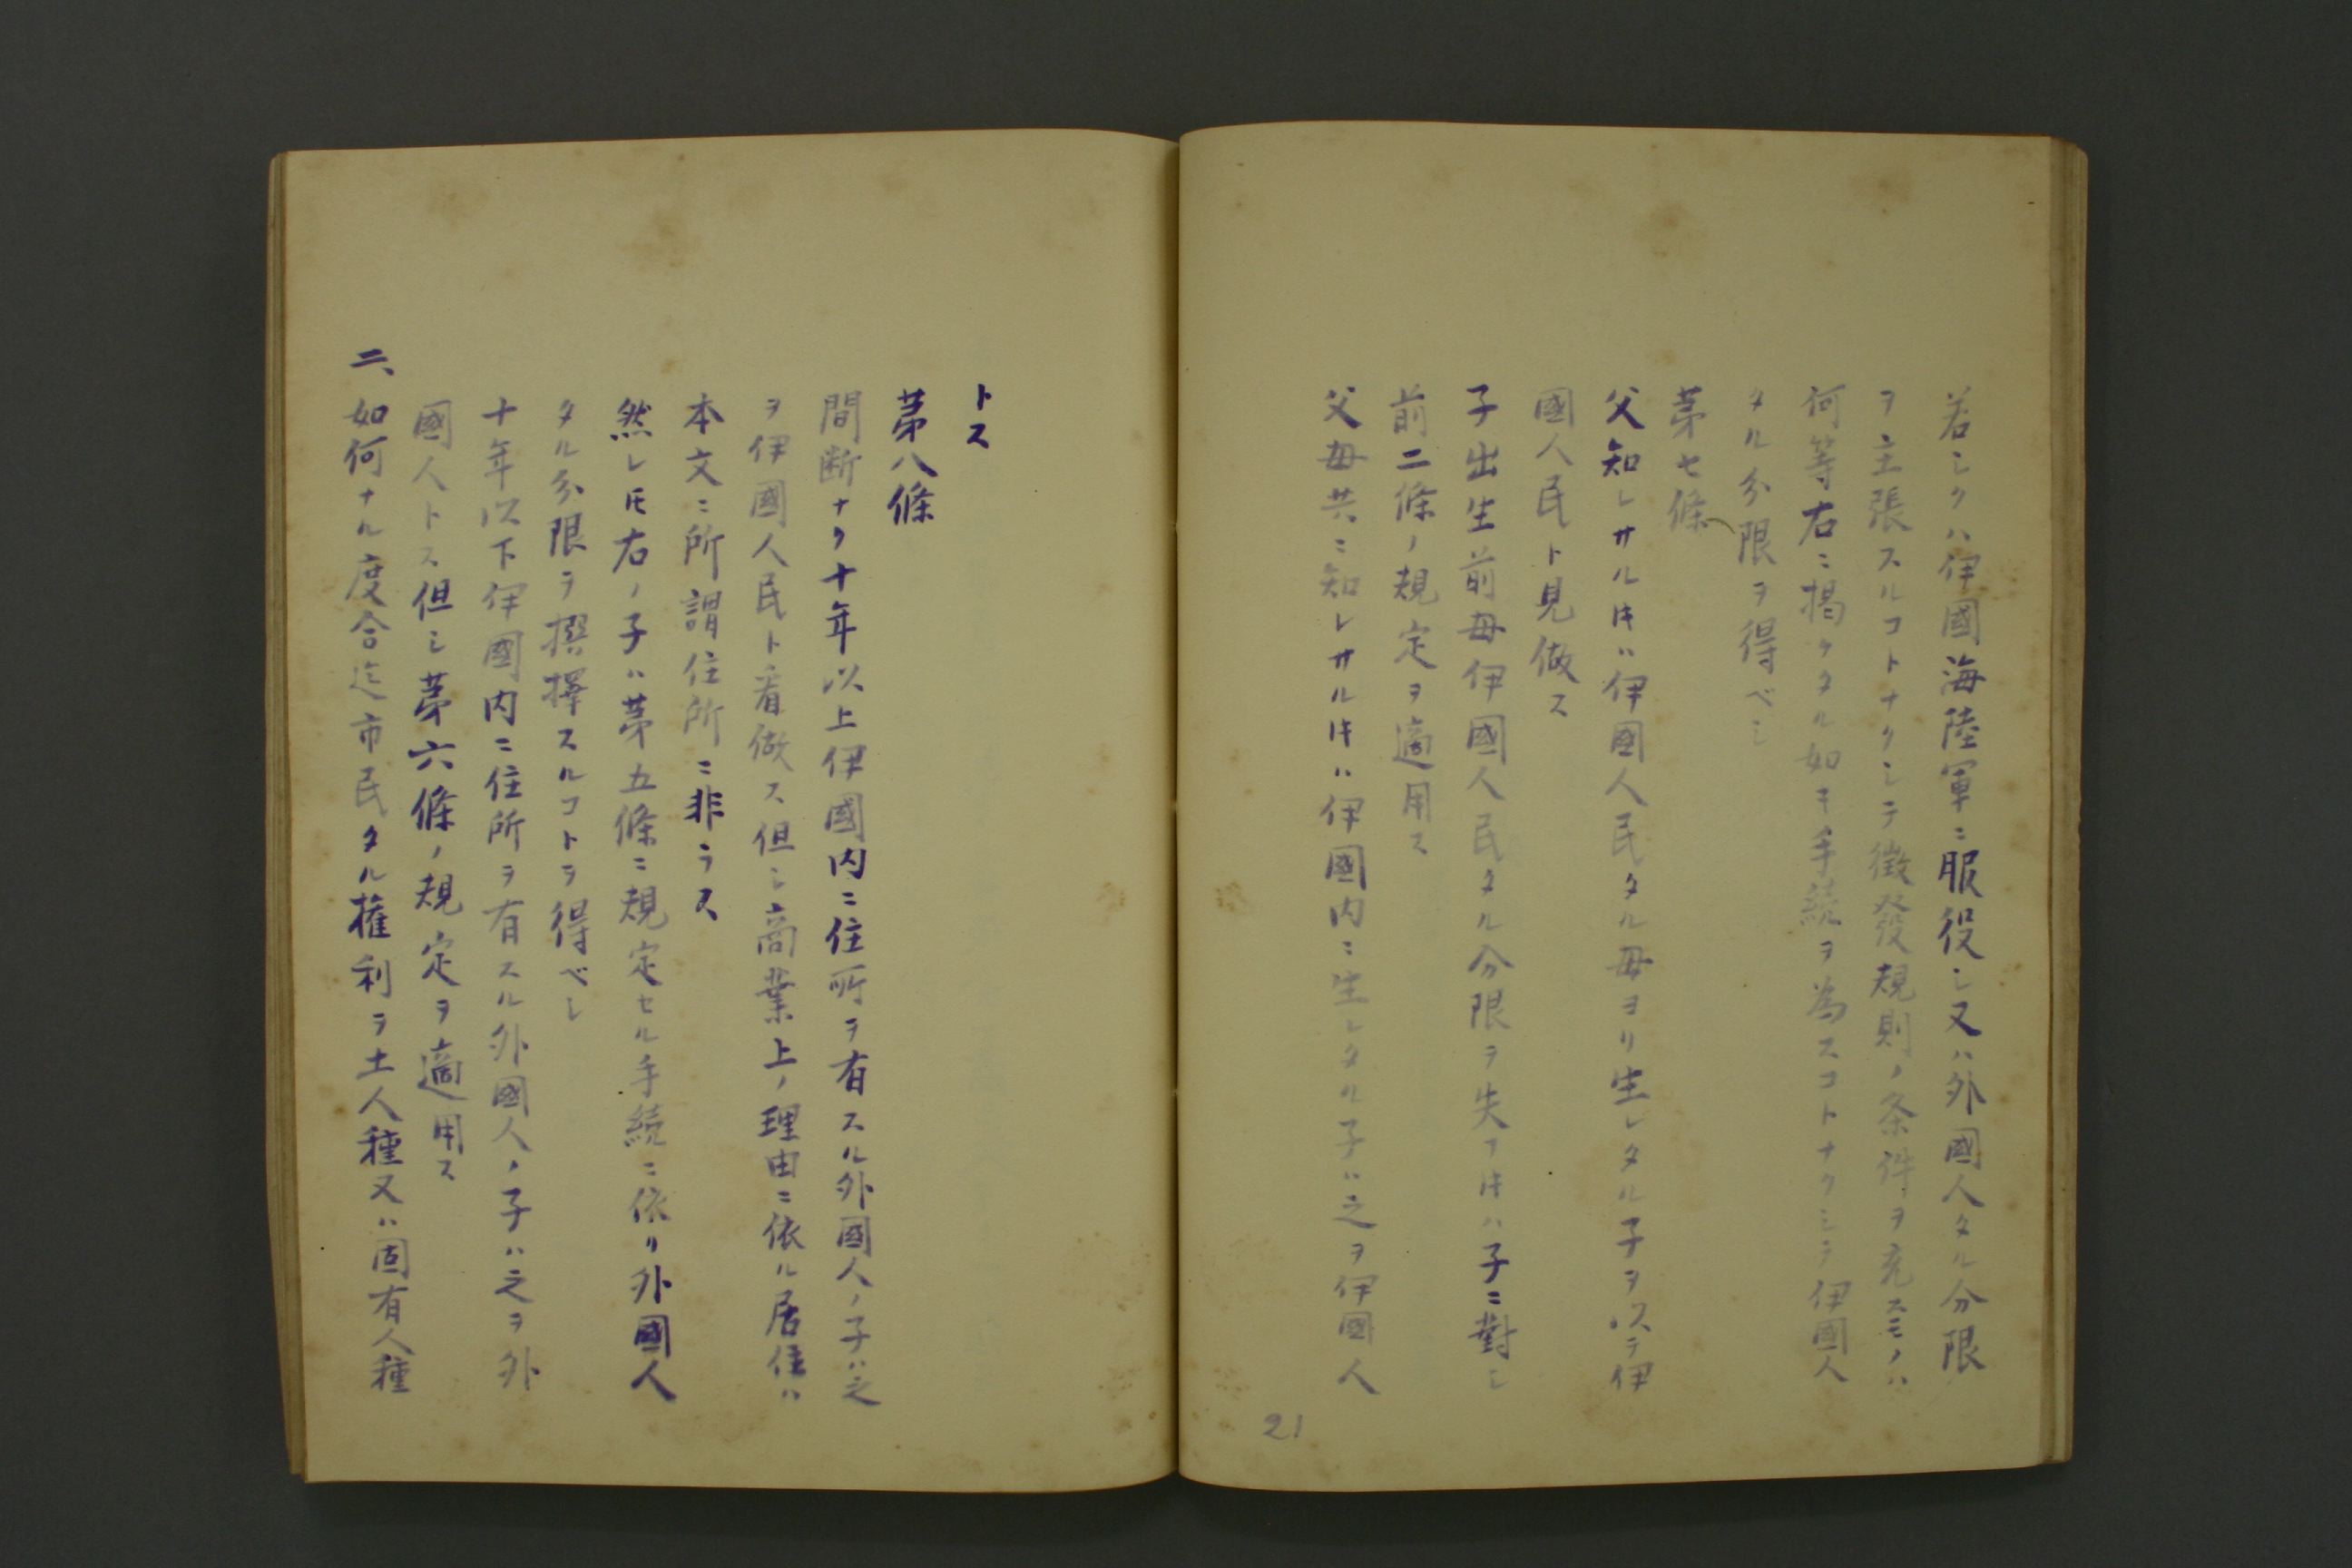 若シクハ伊國海陸軍ニ服役シ又ハ外國人タル分限
ヲ主張スルコトナクシテ徴發規則ノ条件ヲ充スモノハ
何等右ニ掲ケタル如キ手続ヲ為スコトナクシテ伊國人
タル分限ヲ得ベシ
苐七條
父知レサルトキハ伊國人民タル母ヨリ生レタル子ヲ以テ伊
國人民ト見做ス
子出生前母伊國人民タル分限ヲ失フトキハ子ニ對シ
前二條ノ規定ヲ適用ス
父母共ニ知レサルトキハ伊國内ニ生レタル子ハ之ヲ伊國人
21
トス
苐八條
間断ナク十年以上伊國内ニ住所ヲ有スル外國人ノ子ハ之
ヲ伊國人民ト看做ス但シ商業上ノ理由ニ依ル居住ハ
本文ニ所謂住所ニ非ラス
然レトモ右ノ子ハ苐五條ニ規定セル手続ニ依リ外國人
タル分限ヲ撰擇スルコトヲ得ベシ
十年以下伊國内ニ住所ヲ有スル外國人ノ子ハ之ヲ外
國人トス但シ苐六條ノ規定ヲ適用ス
二、如何ナル度合迄市民タル権利ヲ土人種又ハ固有人種